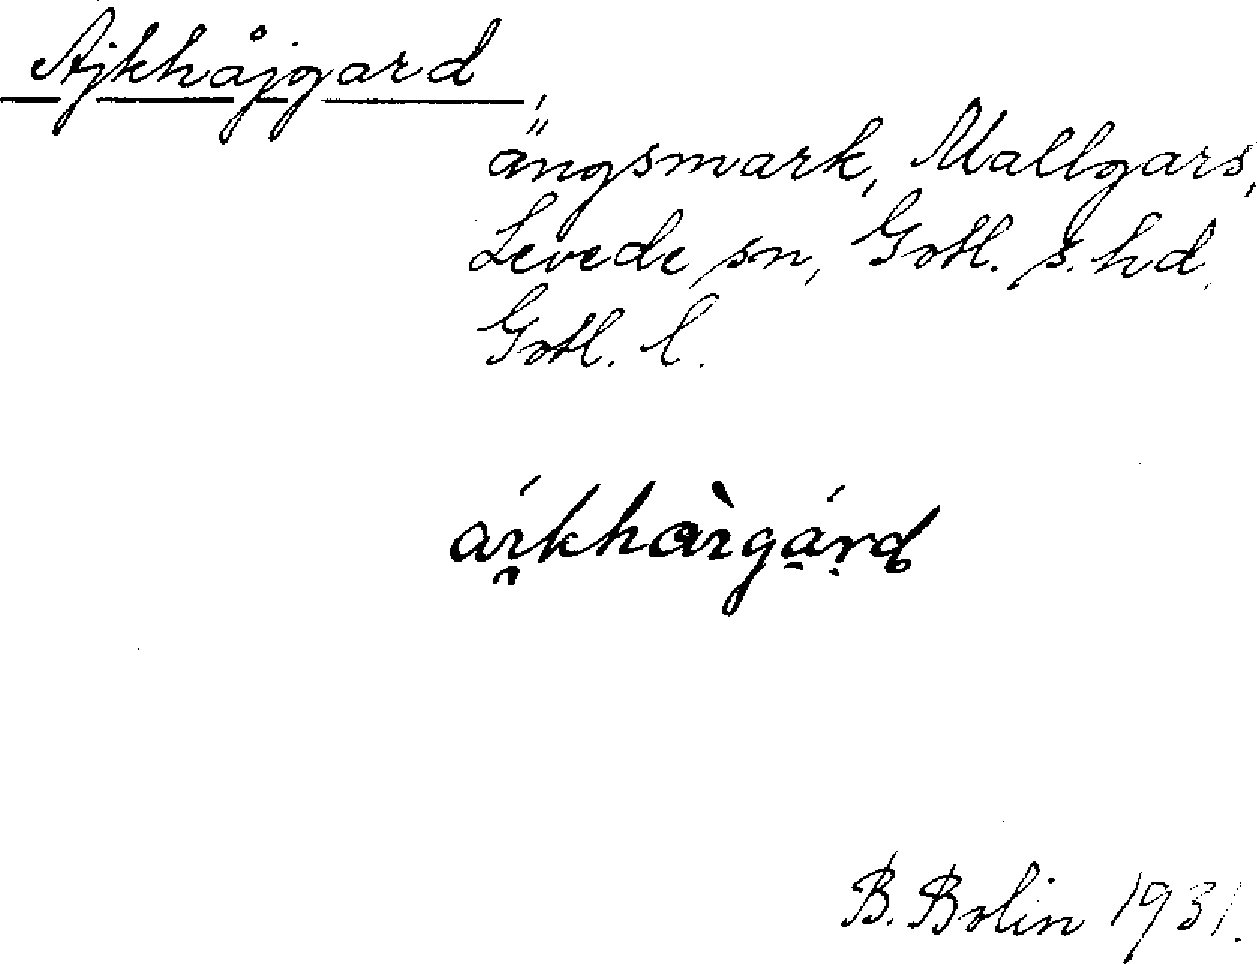 Ajkhåjgard,
ängsmark, Mallgars,
Levede sn, Gotl. s. hd.
Gotl. l.
B. Bolin 1931.